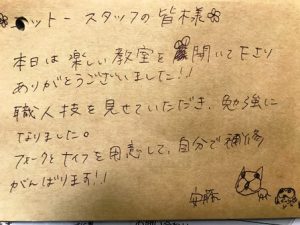 ットー スタッフの皆様
本日は楽しい教室を開いて下さり
ありがとうございました!!
職人技を見せていただき、勉強に
なりました。
フォークとナイフを用意して、自分で補修
がんばります!!
安藤